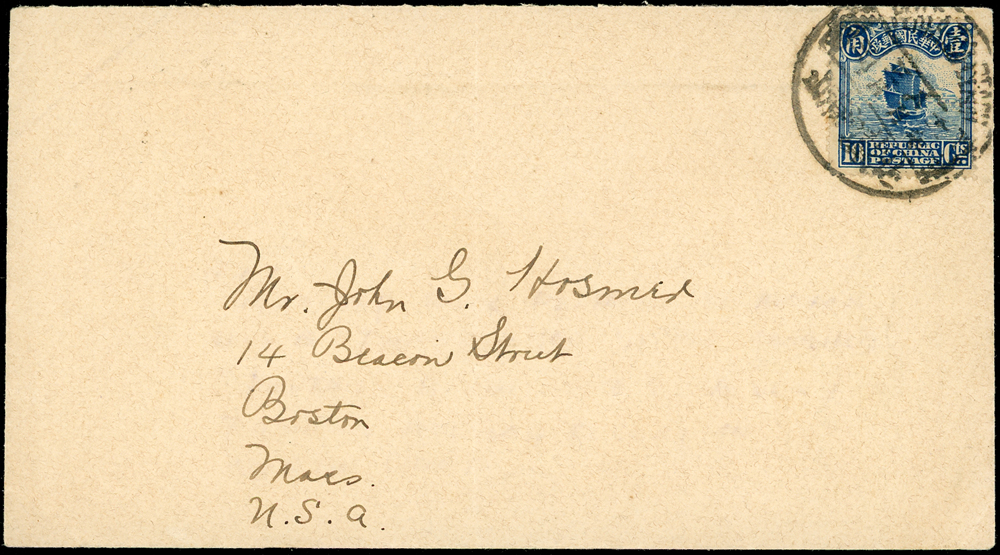 角 中華民國郵政 壹
10 REPUBLIC OF CHINA POSTAGE Cts
Mr. John G. Hosmer
14 Beacon Street
Boston
Mass.
U.S.A.